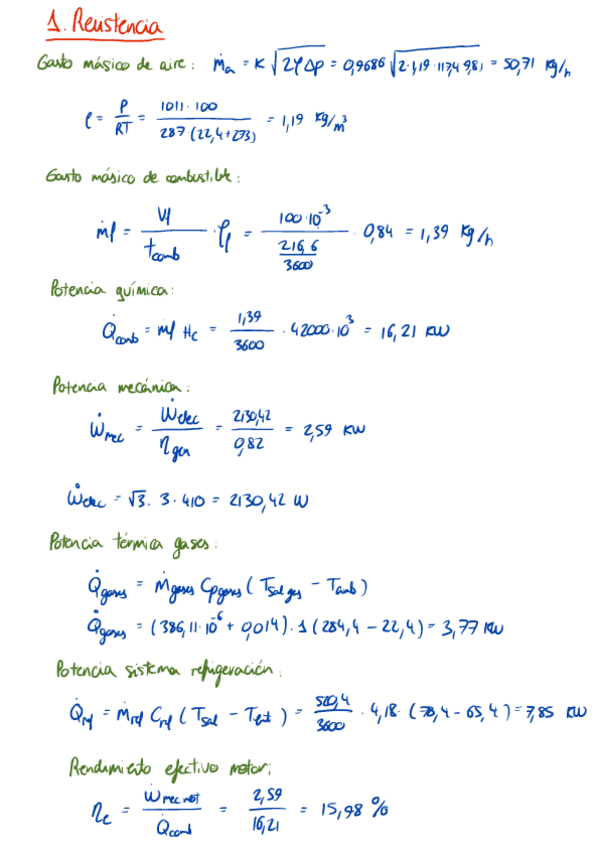 1. Resistencia
Gasto másico de aire: ṁa = K √(2ρΔp) = 0,9686 √(2·1,19·117,4·9,81) = 50,71 kg/h
ρ = P/RT = 1011·100 / 287·(22,4+273) = 1,19 kg/m³
Gasto másico de combustible:
ṁf = Vf/tcomb · ρf = 100·10⁻³ / (216,6/3600) · 0,84 = 1,39 kg/h
Potencia química:
Q̇comb = ṁf Hc = 1,39/3600 · 42000·10³ = 16,21 KW
Potencia mecánica:
Ẇmec = Ẇelec/ηgen = 2130,42/0,82 = 2,59 KW
Ẇelec = √3 · 3 · 410 = 2130,42 W
Potencia térmica gases:
Q̇gases = ṁgases Cpgases (Tsal ges − Tamb)
Q̇gases = (386,11·10⁻⁶ + 0,014) · 1 (284,4 − 22,4) = 3,77 KW
Potencia sistema refrigeración:
Q̇ref = ṁref Cref (Tsal − Tent) = 520,4/3600 · 4,18 · (78,4 − 65,4) = 7,85 KW
Rendimiento efectivo motor:
ηe = Ẇmec mot/Q̇comb = 2,59/16,21 = 15,98 %